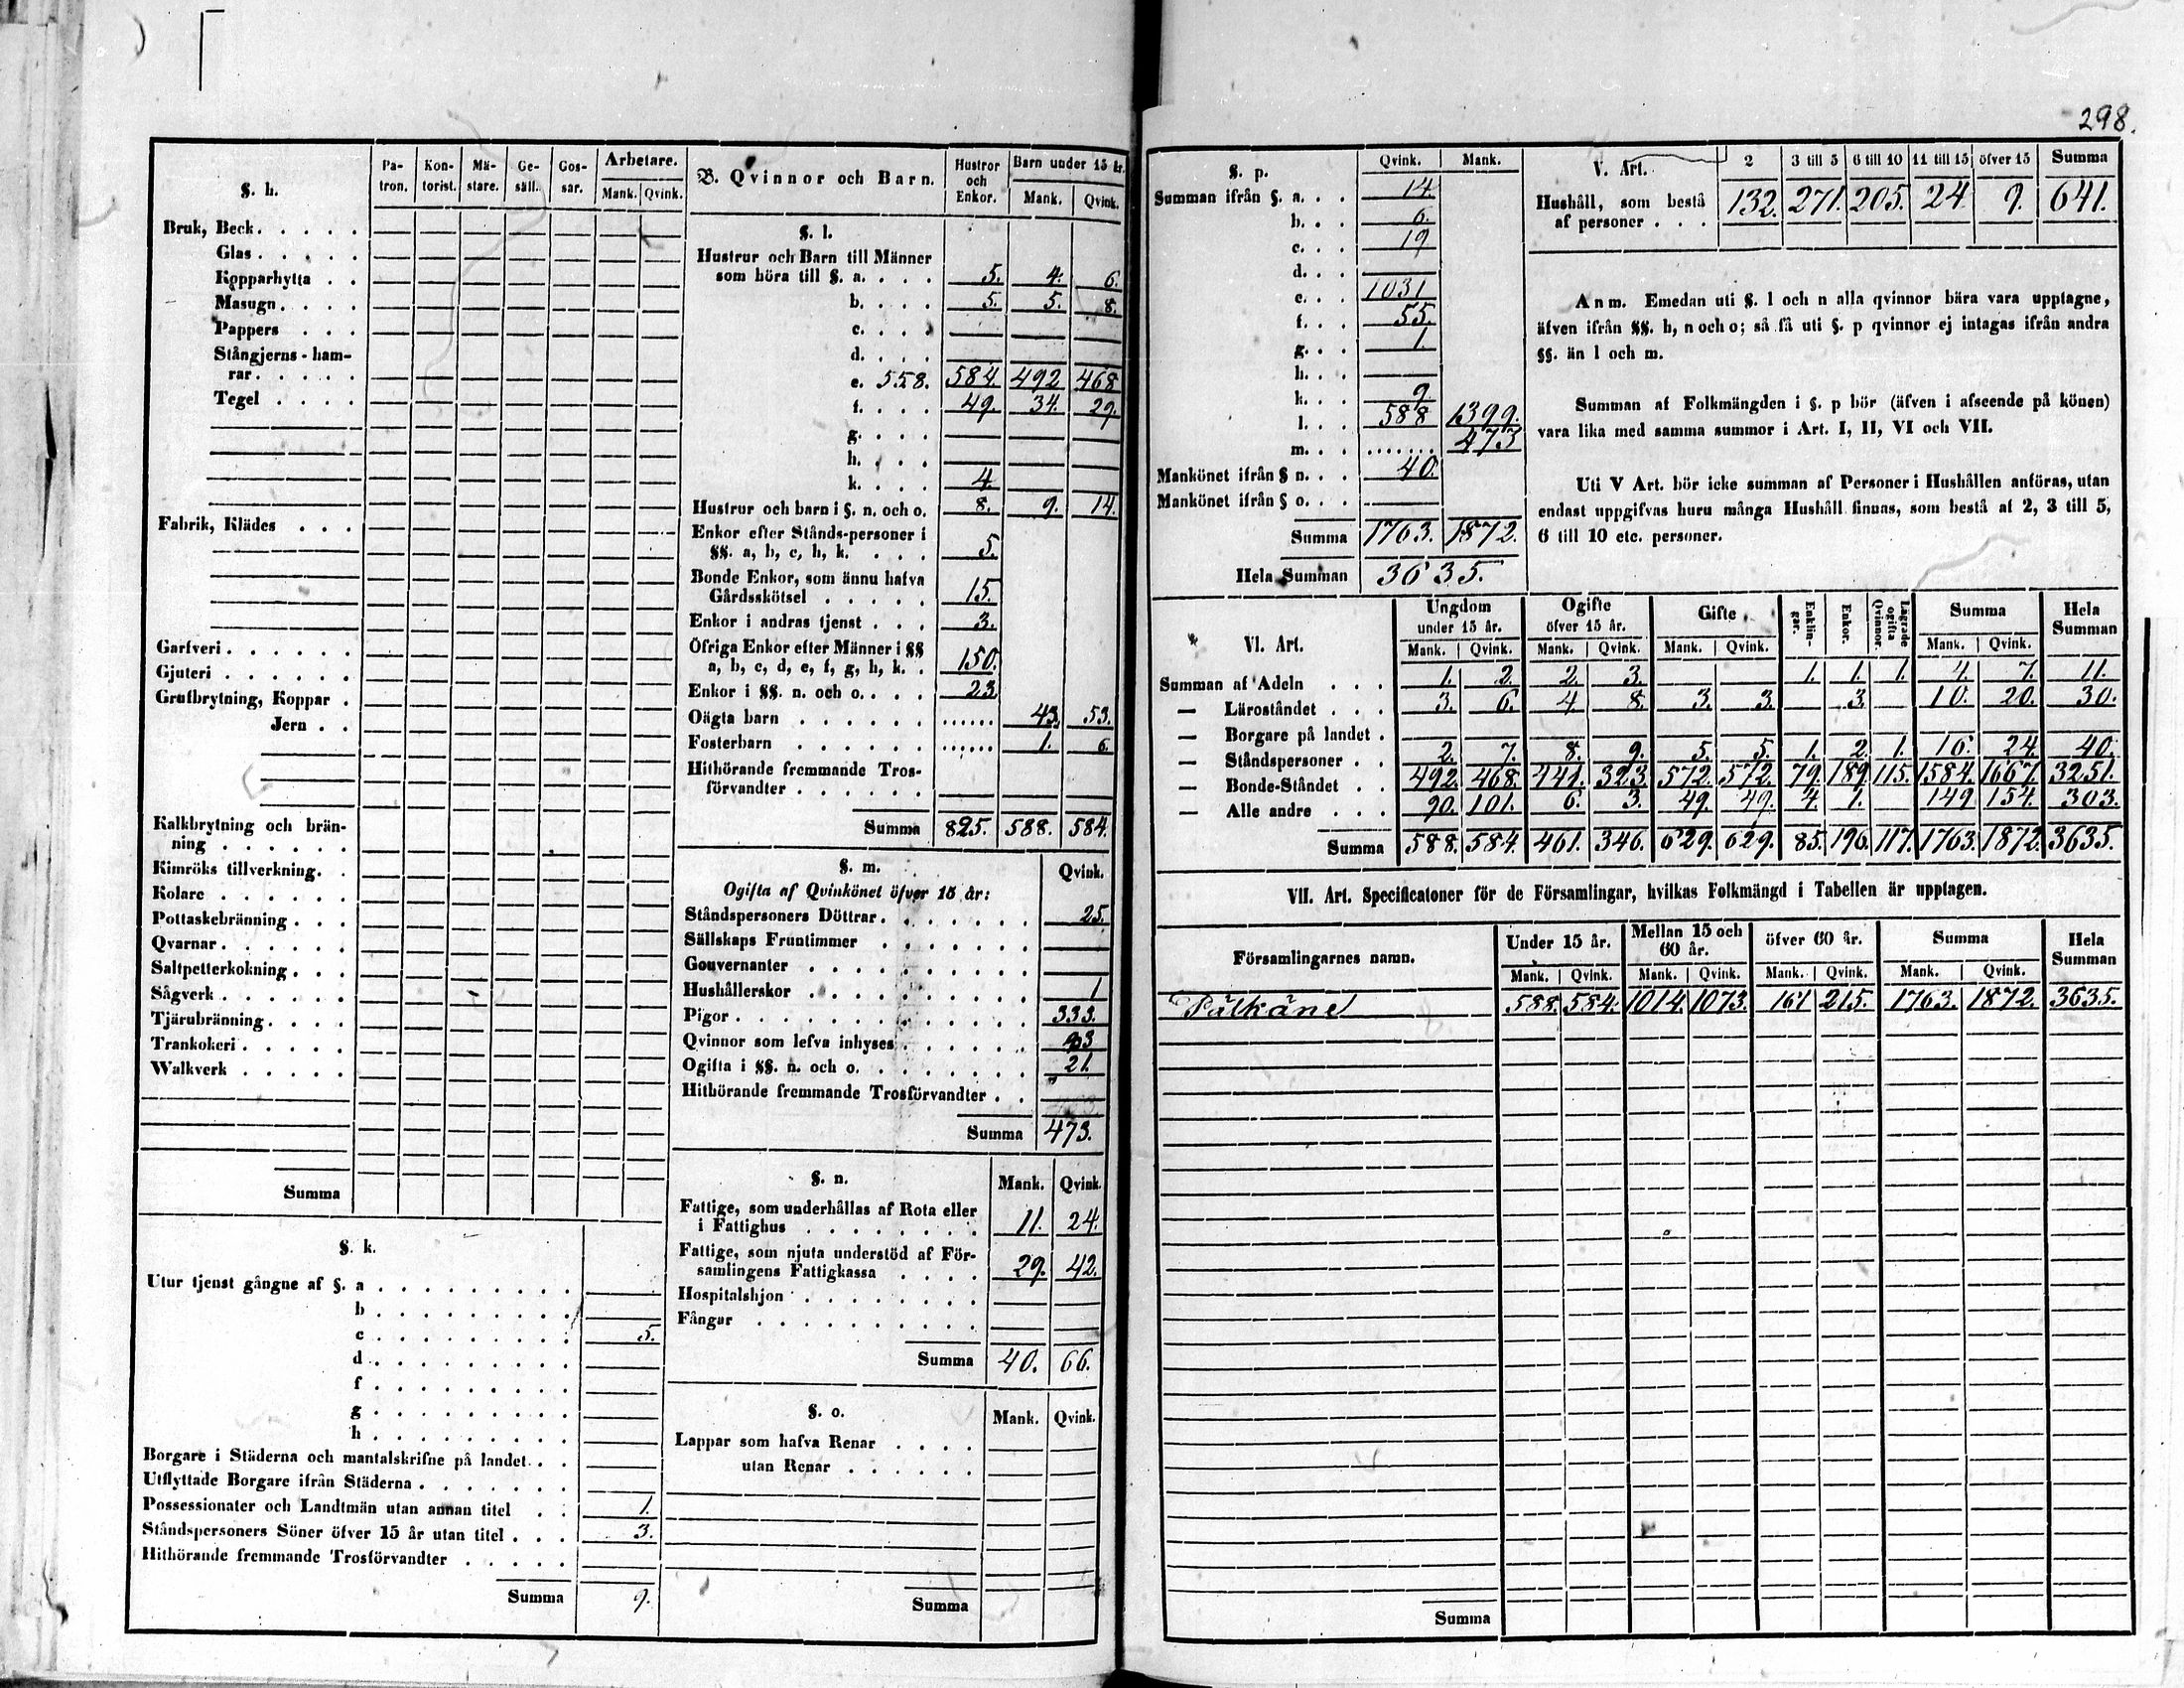 298.
§. h.
Pa-tron. Kon-torist. Mä-stare. Ge-säll. Gos-sar. Arbetare.
Mank. Qvink.
Bruk, Beck. . . . .
Glas. . . . .
Kopparhytta . .
Masugn. . . .
Pappers . . .
Stångjerns-ham-
rar. . . . .
Tegel . . . .
Fabrik, Klädes . . .
Garfveri. . . . . .
Gjuteri . . . . . .
Grufbrytning, Koppar .
Jern . .
Kalkbrytning och brän-
ning . . . . . .
Kimröks tillverkning. .
Kolare . . . . . .
Pottaskebränning . . .
Qvarnar. . . . . .
Saltpetterkokning . . .
Sågverk . . . . . .
Tjärubränning. . . .
Trankokeri . . . . .
Walkverk . . . . .
Summa
§. k.
Utur tjenst gångne af §. a . . . . . . . . .
b . . . . . . . . .
c . . . . . . . . . 5.
d . . . . . . . . .
f . . . . . . . . .
g . . . . . . . . .
h . . . . . . . . .
Borgare i Städerna och mantalskrifne på landet. . .
Utflyttade Borgare ifrån Städerna . . . . . .
Possessionater och Landtmän utan annan titel . . 1.
Ståndspersoners Söner öfver 15 år utan titel . . . 3.
Hithörande fremmande Trosförvandter . . . . .
Summa 9.
B. Qvinnor och Barn. Hustror och Enkor. Barn under 15 år.
Mank. Qvink.
§. l.
Hustrur och Barn till Männer
som höra till §. a. . . . 5. 4. 6.
b. . . . 5. 5. 8.
c. . . .
d. . . .
e. 558. 584. 492 468
f. . . . 49. 34. 29.
g. . . .
h. . . .
k. . . . 4.
Hustrur och barn i §. n. och o. 8. 9. 14.
Enkor efter Stånds-personer i
§§. a, b, c, h, k. . . . 5.
Bonde Enkor, som ännu hafva
Gårdsskötsel . . . . . 15.
Enkor i andras tjenst . . . 3.
Öfriga Enkor efter Männer i §§
a, b, c, d, e, f, g, h, k. . 150.
Enkor i §§. n. och o. . . . 23
Oägta barn . . . . . . ...... 43. 53.
Fosterbarn . . . . . . ...... 1. 6.
Hithörande fremmande Tros-
förvandter . . . . . .
Summa 825. 588. 584.
§. m. Qvink.
Ogifta af Qvinkönet öfver 15 år:
Ståndspersoners Döttrar . . . . . . . 25.
Sällskaps Fruntimmer . . . . . . .
Gouvernanter . . . . . . . . . .
Hushållerskor . . . . . . . . . . 1
Pigor . . . . . . . . . . . . . 333.
Qvinnor som lefva inhyses . . . . . . 93
Ogifta i §§. n. och o. . . . . . . . 21.
Hithörande fremmande Trosförvandter . .
Summa 473.
§. n. Mank. Qvink.
Fattige, som underhållas af Rota eller
i Fattighus . . . . . . . . 11. 24.
Fattige, som njuta understöd af För-
samlingens Fattigkassa . . . . 29. 42.
Hospitalshjon . . . . . . . .
Fångar . . . . . . . . . .
Summa 40. 66.
§. o. Mank. Qvink.
Lappar som hafva Renar . . . .
utan Renar . . . . . .
Summa
§. p. Qvink. Mank.
Summan ifrån §. a. . . 14.
b. . . 6.
c. . . 19
d. . .
e. . . 1031
f. . . 55.
g. . . 1.
h. . .
k. . . 9.
l. . . 588 1399.
m. . . ....... 473
Mankönet ifrån § n. . . 40.
Mankönet ifrån § o. . .
Summa 1763. 1872.
Hela Summan 3635.
V. Art. 2 3 till 5 6 till 10 11 till 15 öfver 15 Summa
Hushåll, som bestå
af personer . . . 132. 271. 205. 24 9. 641.
Anm. Emedan uti §. l och n alla qvinnor bära vara upptagne,
äfven ifrån §§. h, n och o; så få uti §. p qvinnor ej intagas ifrån andra
§§. än l och m.
Summan af Folkmängden i §. p bör (äfven i afseende på könen)
vara lika med samma summor i Art. I, II, VI och VII.
Uti V Art. bör icke summan af Personer i Hushållen anföras, utan
endast uppgifvas huru många Hushåll finnas, som bestå af 2, 3 till 5,
6 till 10 etc. personer.
VI. Art. Ungdom under 15 år. Ogifte öfver 15 år. Gifte Enklin-gar. Enkor. Lägrade ogifta Qvinnor. Summa Hela Summan
Mank. Qvink. Mank. Qvink. Mank. Qvink. Mank. Qvink.
Summan af Adeln . . . 1. 2. 2. 3. 1. 1. 1. 4. 7. 11.
— Läroståndet . . . 3. 6. 4 8. 3. 3. 3. 10. 20. 30.
— Borgare på landet .
— Ståndspersoner . . 2. 7. 8. 9. 5. 5. 1. 2. 1. 16. 24. 40.
— Bonde-Ståndet . . 492. 468. 441. 323. 572. 572. 79. 189. 115. 1584. 1667. 3251.
— Alle andre . . . 90. 101. 6. 3. 49. 49. 4. 1. 149 154. 303.
Summa 588. 584. 461. 346. 629. 629. 85. 196. 117. 1763. 1872. 3635.
VII. Art. Specificatoner för de Församlingar, hvilkas Folkmängd i Tabellen är upptagen.
Församlingarnes namn. Under 15 år. Mellan 15 och 60 år. öfver 60 år. Summa Hela Summan
Mank. Qvink. Mank. Qvink. Mank. Qvink. Mank. Qvink.
Pälkäne 588. 584. 1014. 1073. 161 215. 1763. 1872. 3635.
Summa